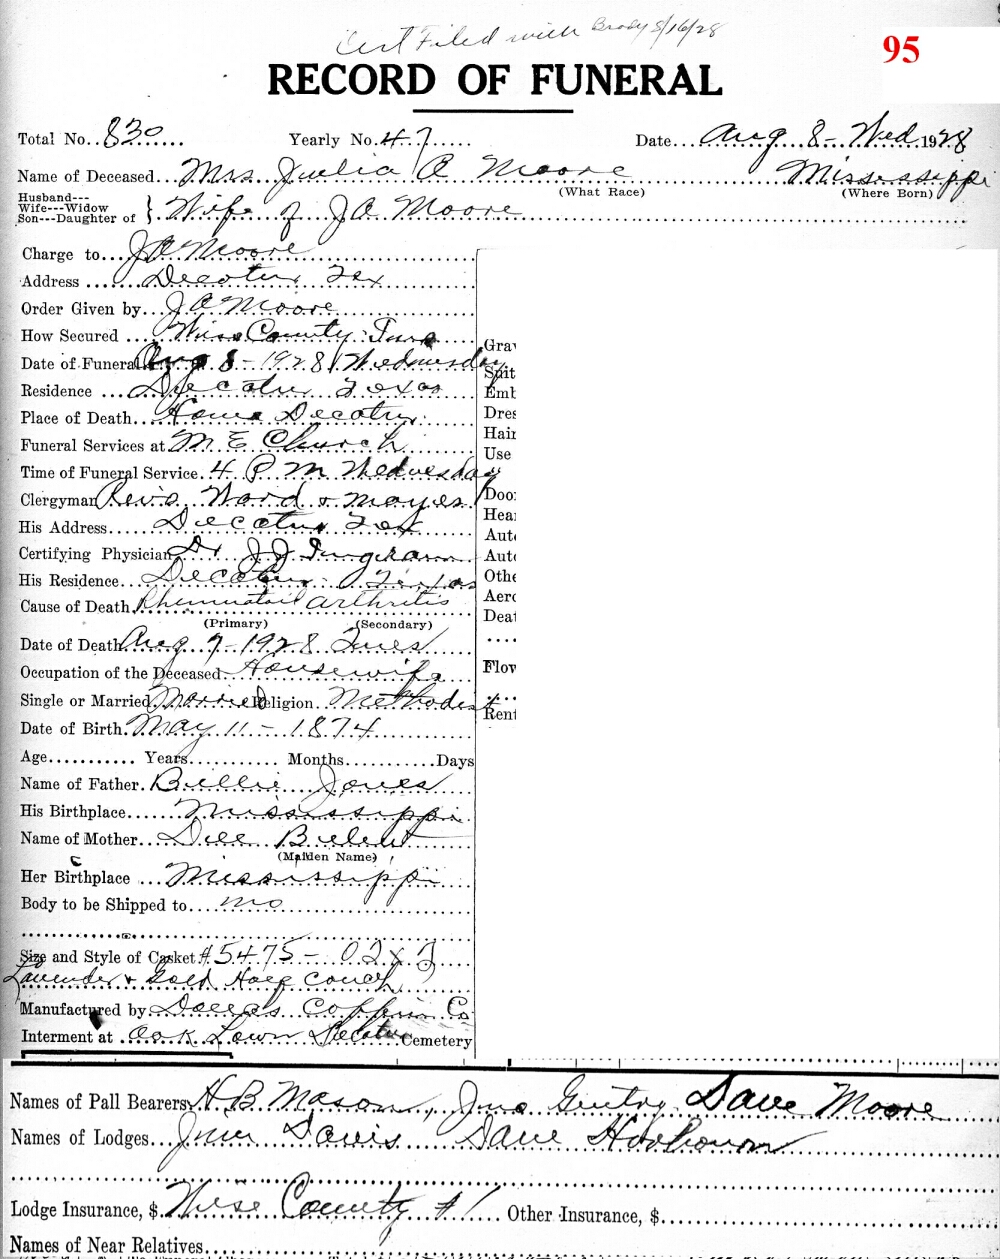 Cert Filed with Brady 8/16/28
95
RECORD OF FUNERAL
Total No. 830 Yearly No. 47 Date Aug 8 - Wed 1928
Name of Deceased Mrs Julia A Moore (What Race) Mississippi (Where Born)
Husband---
Wife---Widow
Son---Daughter of } Wife of J A Moore
Charge to J A Moore
Address Decatur Tex
Order Given by J A Moore
How Secured Wise County Ins
Date of Funeral Aug 8 - 1928 Wednesday
Residence Decatur Texas
Place of Death Home Decatur
Funeral Services at M E Church
Time of Funeral Service 4 P M Wednesday
Clergyman Revs Ward & Mayes
His Address Decatur Tex
Certifying Physician Dr J J Ingram
His Residence Decatur Texas
Cause of Death Rhumatoid arthritis
(Primary) (Secondary)
Date of Death Aug 7 - 1928 Tues
Occupation of the Deceased Housewife
Single or Married Married Religion Methodist
Date of Birth May 11 - 1874
Age Years Months Days
Name of Father Billie Jones
His Birthplace Mississippi
Name of Mother Dell
(Maiden Name)
Her Birthplace Mississippi
Body to be Shipped to no
Size and Style of Casket #5475 -
Lavender & Gold Half Couch
Manufactured by Dallas Coffin Co
Interment at Oak Lawn Decatur Cemetery
Grav
Suit
Emb
Dres
Hair
Use
Door
Hear
Auto
Auto
Othe
Aero
Deat
Flow
Rent
Names of Pall Bearers H B Mason, Jno Gentry Dave Moore
Names of Lodges Davis Dave
Lodge Insurance, $ Wise County #1 Other Insurance, $
Names of Near Relatives